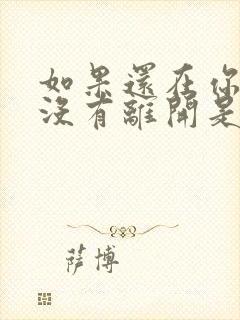 如果還在你
沒有離開是
萨博